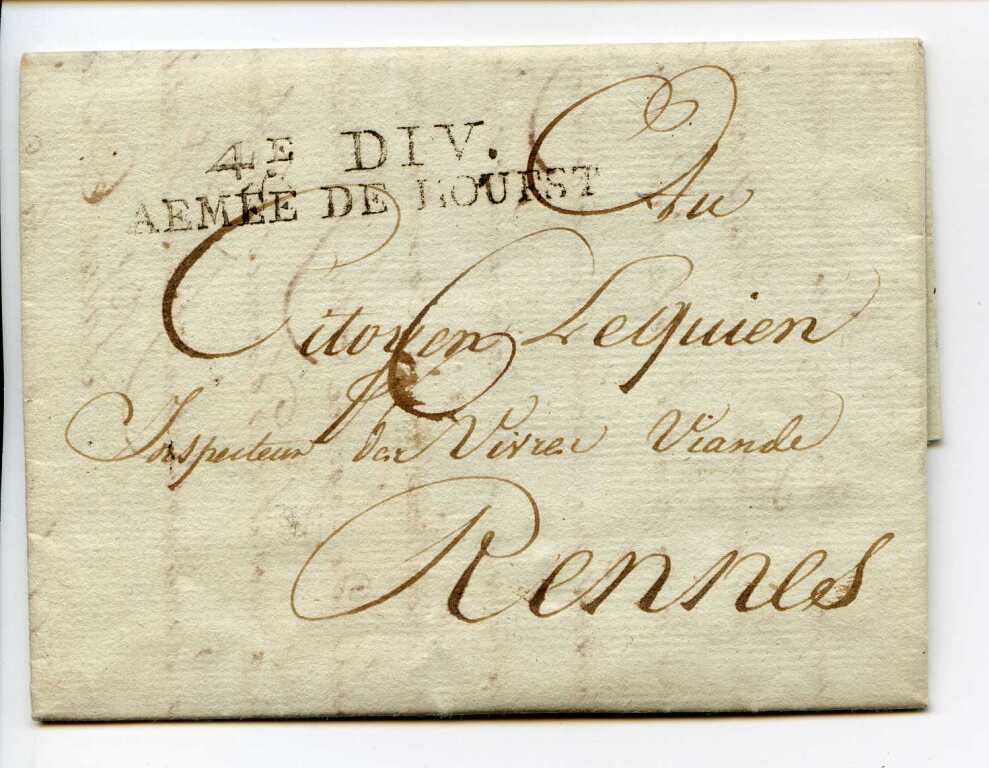 4E DIV.
ARMÉE DE L'OUEST
Au
Citoyen Lequien
Inspecteur des Vivres Viande
Rennes